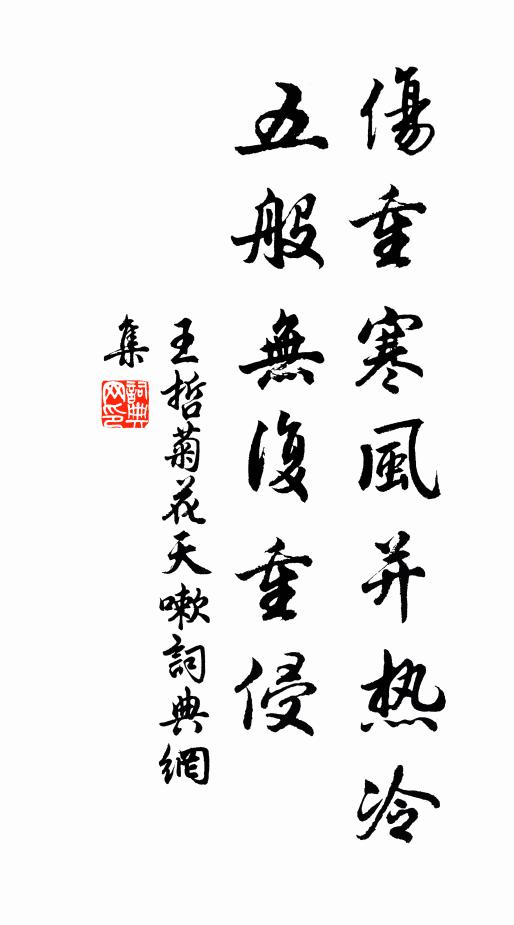 傷重寒風并热冷
五般無復重侵
王哲菊花天嗽詞典網
集
詞典网印